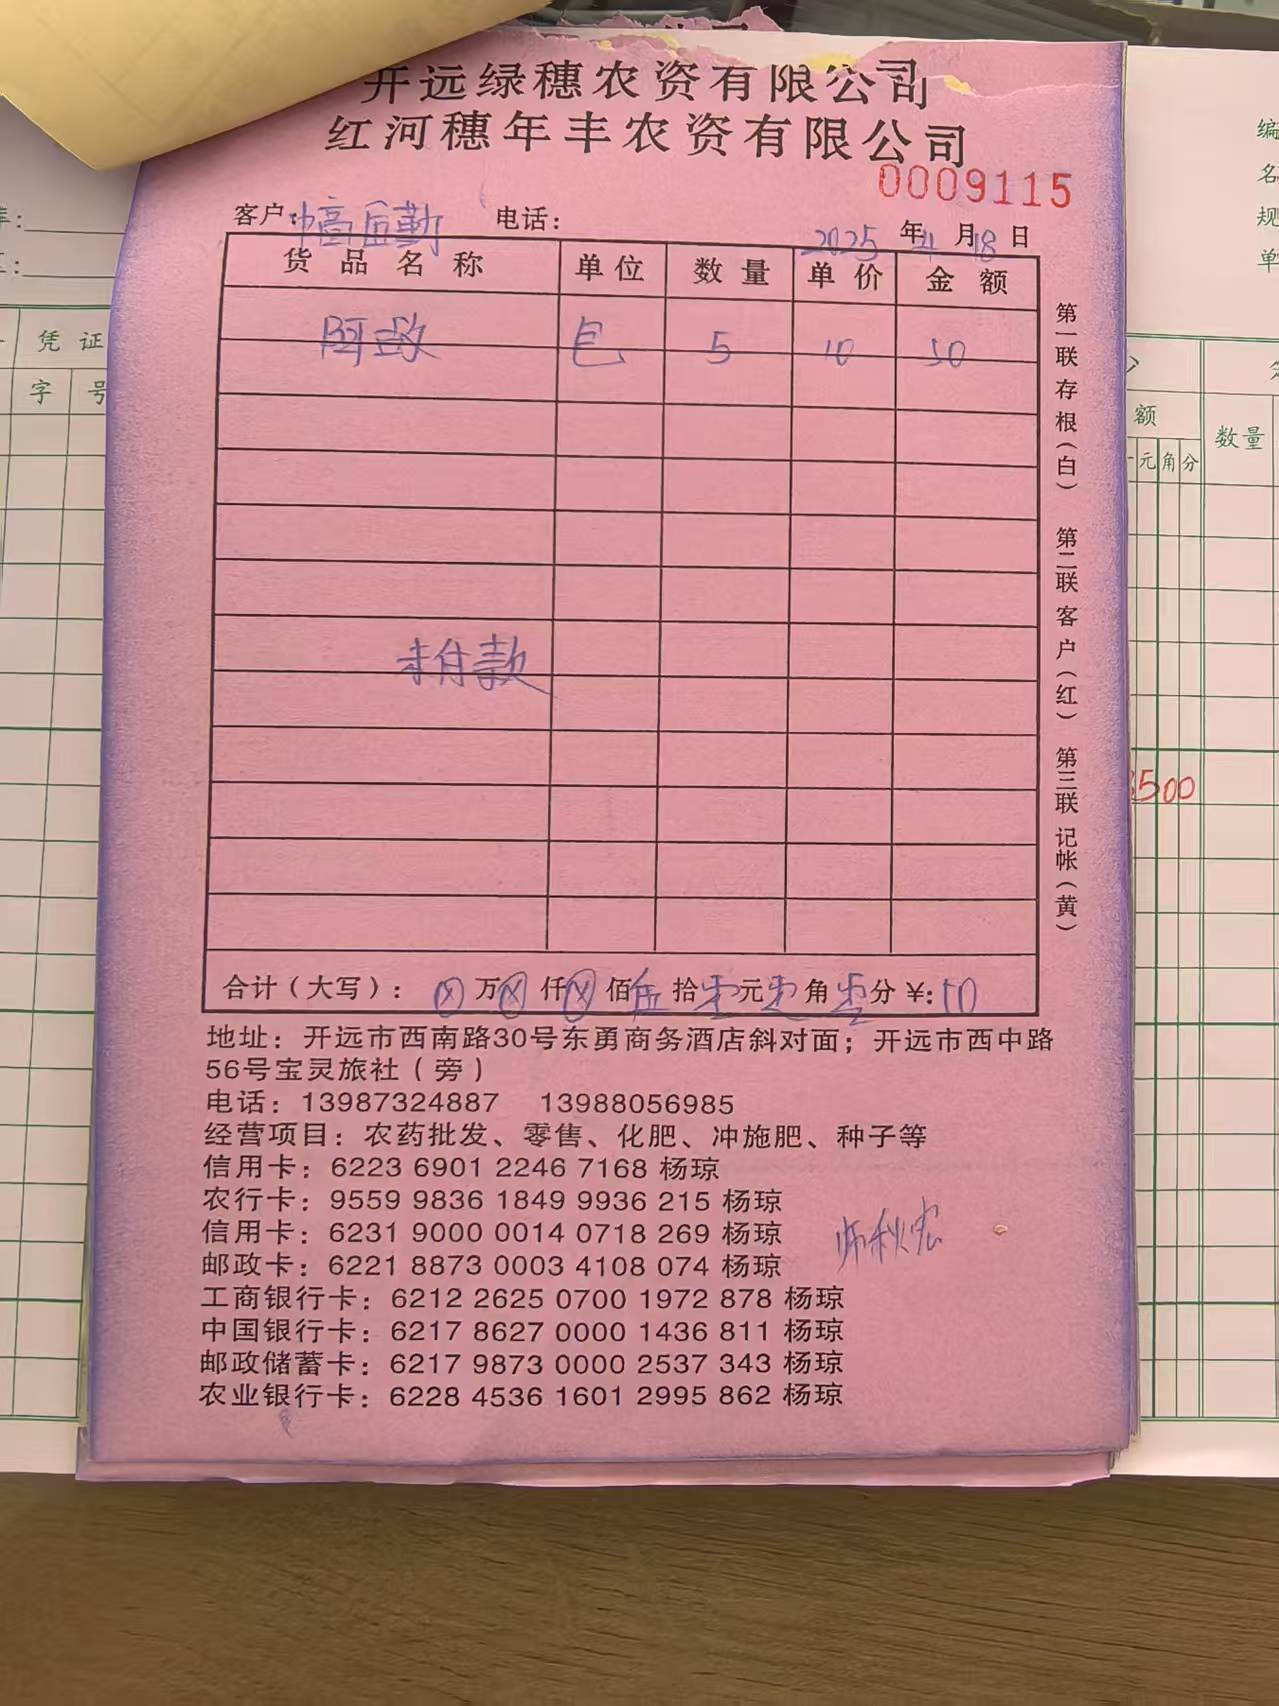 开远绿穗农资有限公司
红河穗年丰农资有限公司
0009115
客户: 电话: 2025年4月18日
货品名称 单位 数量 单价 金额
包 5 10 50
未付款
合计(大写): ⊗万⊗仟⊗佰伍拾零元零角零分 ¥:50
第一联存根(白) 第二联客户(红) 第三联记帐(黄)
地址: 开远市西南路30号东勇商务酒店斜对面; 开远市西中路
56号宝灵旅社(旁)
电话: 13987324887 13988056985
经营项目: 农药批发、零售、化肥、冲施肥、种子等
信用卡: 6223 6901 2246 7168 杨琼
农行卡: 9559 9836 1849 9936 215 杨琼
信用卡: 6231 9000 0014 0718 269 杨琼
邮政卡: 6221 8873 0003 4108 074 杨琼
工商银行卡: 6212 2625 0700 1972 878 杨琼
中国银行卡: 6217 8627 0000 1436 811 杨琼
邮政储蓄卡: 6217 9873 0000 2537 343 杨琼
农业银行卡: 6228 4536 1601 2995 862 杨琼
凭证
字 号
编
名
规
单
额
数量
元角分
500